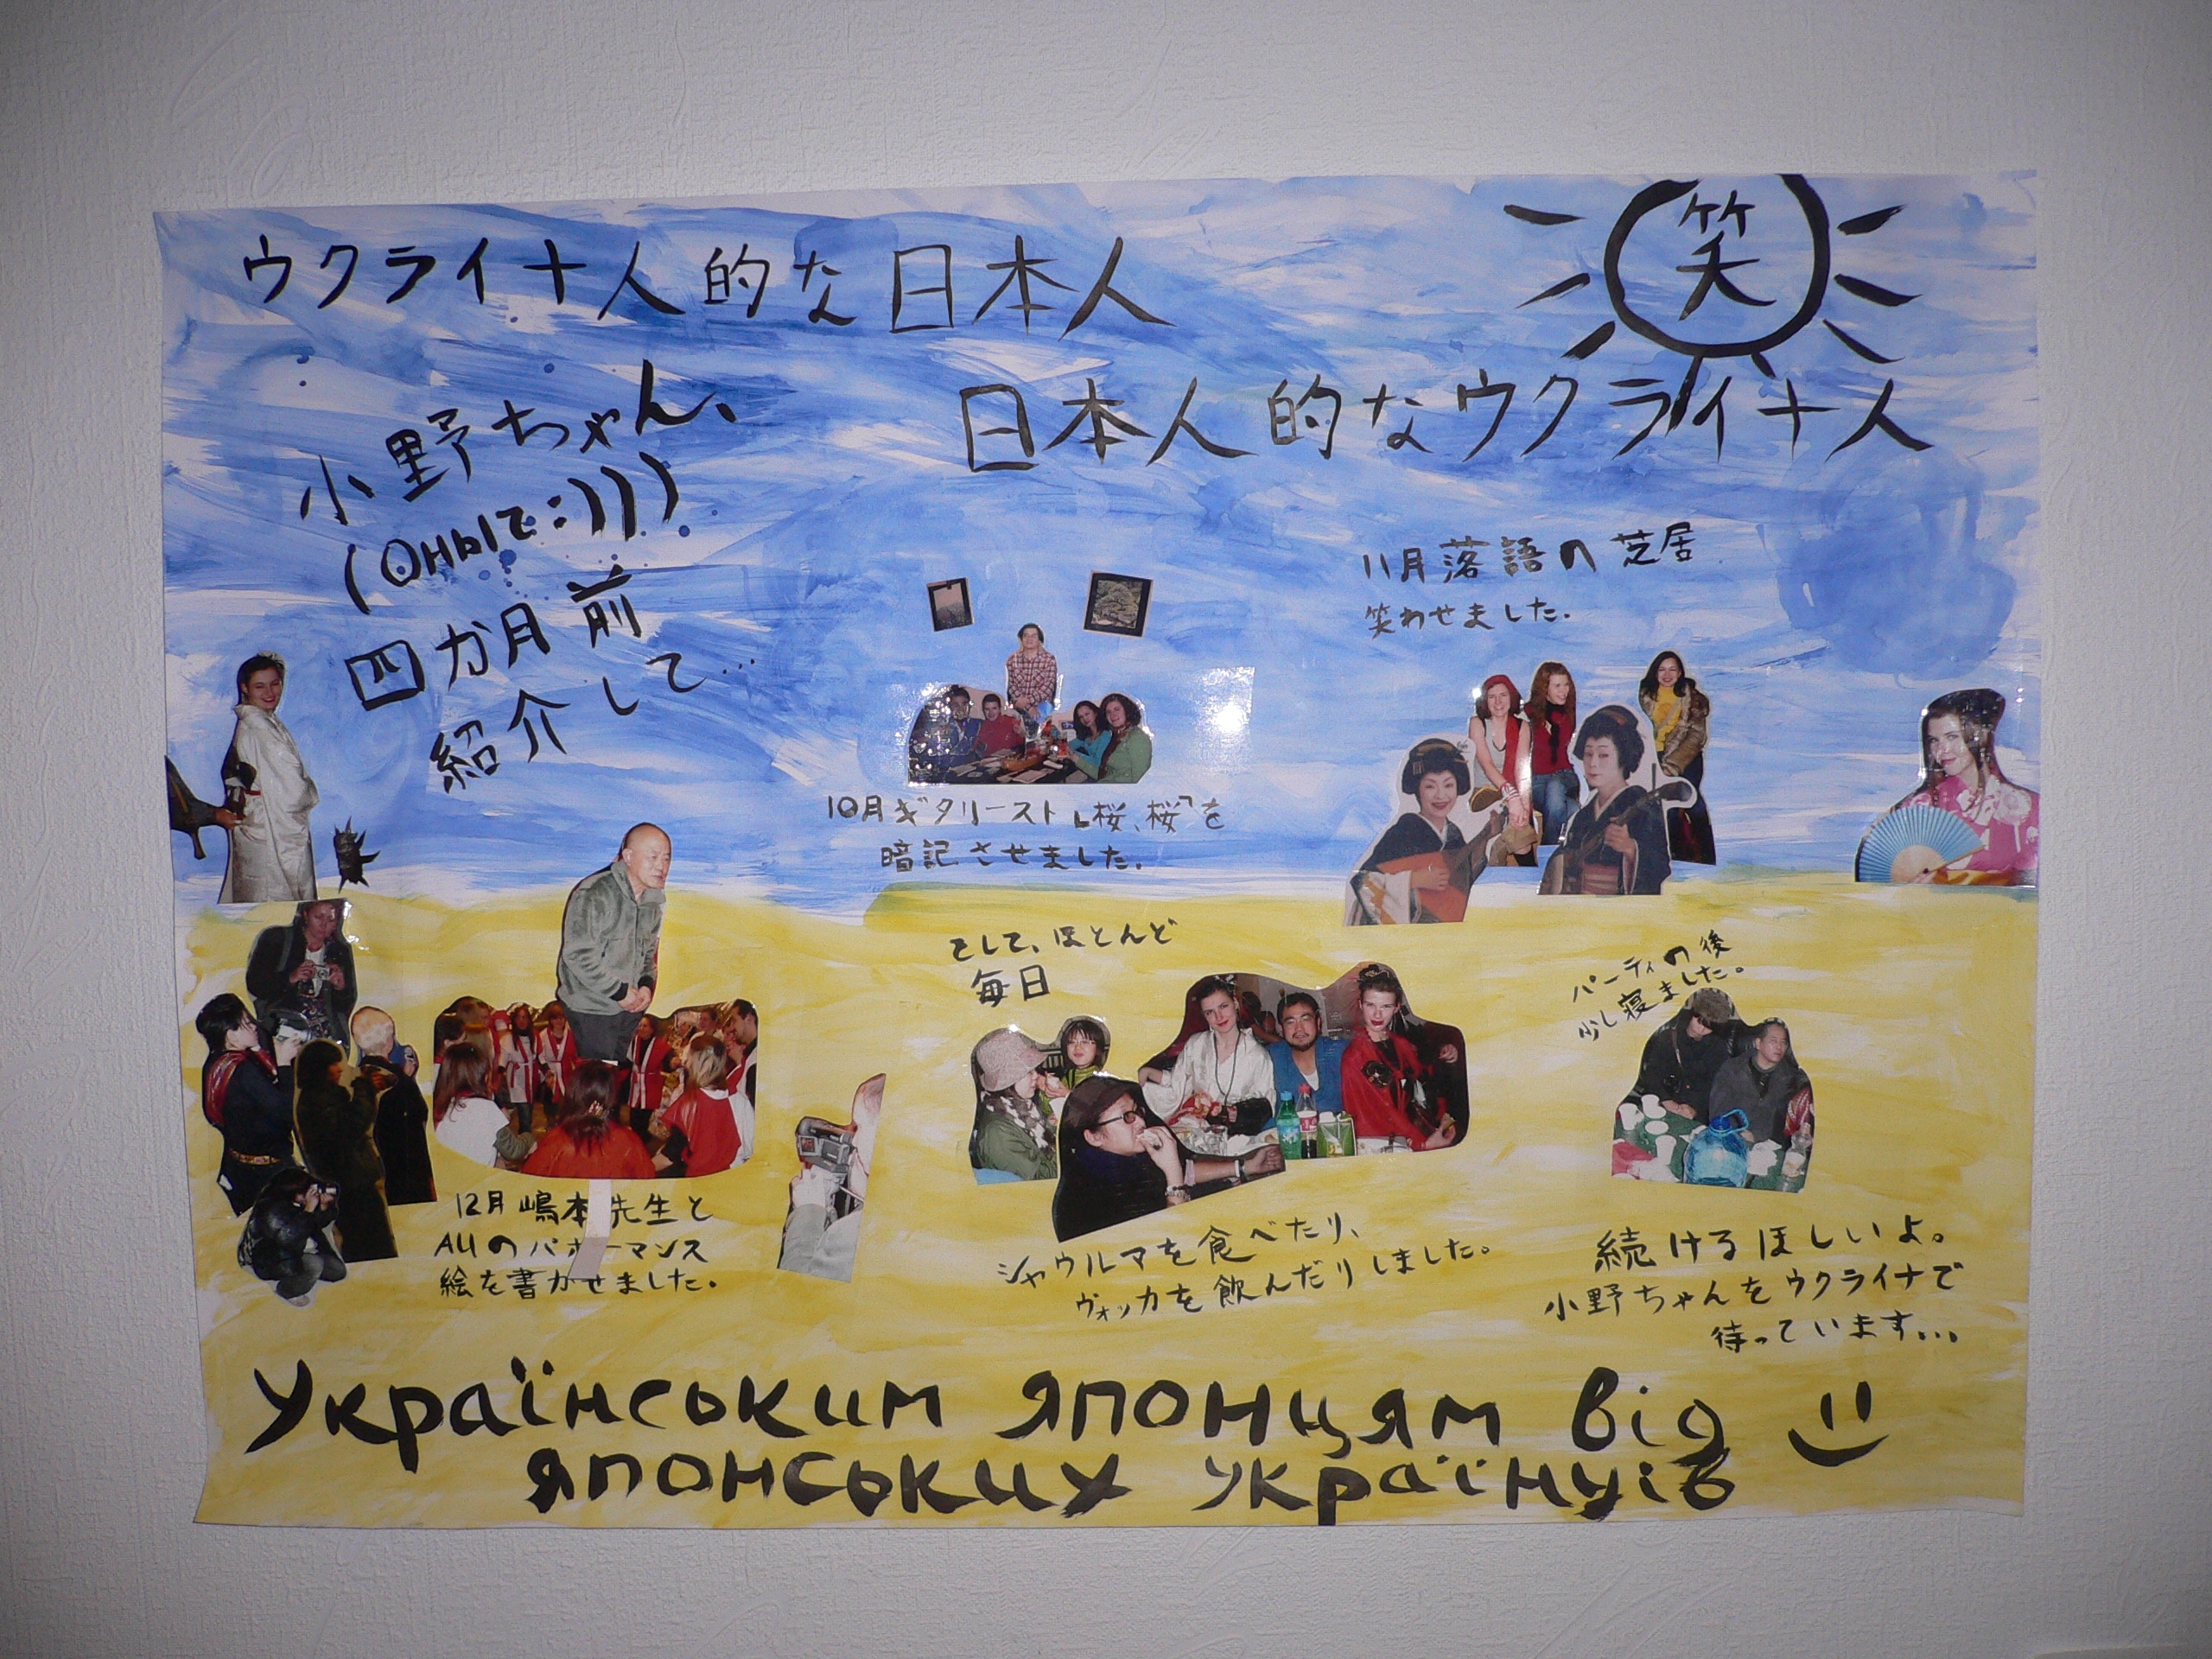 ウクライナ人的な日本人
笑
日本人的なウクライナ人
小野ちゃん、
(Оныで:)))
四か月前
紹介して...
10月ギタリースト「桜、桜」を
暗記させました。
11月落語の芝居
笑わせました.
12月嶋本先生と
AUのパホーマンス
絵を書かせました.
そして、ほとんど
毎日
シャウルマを食べたり、
ヴォッカを飲んだりしました。
パーティの後
少し寝ました。
続けるほしいよ。
小野ちゃんをウクライナで
待っています...
Українським японцям від
японських українців